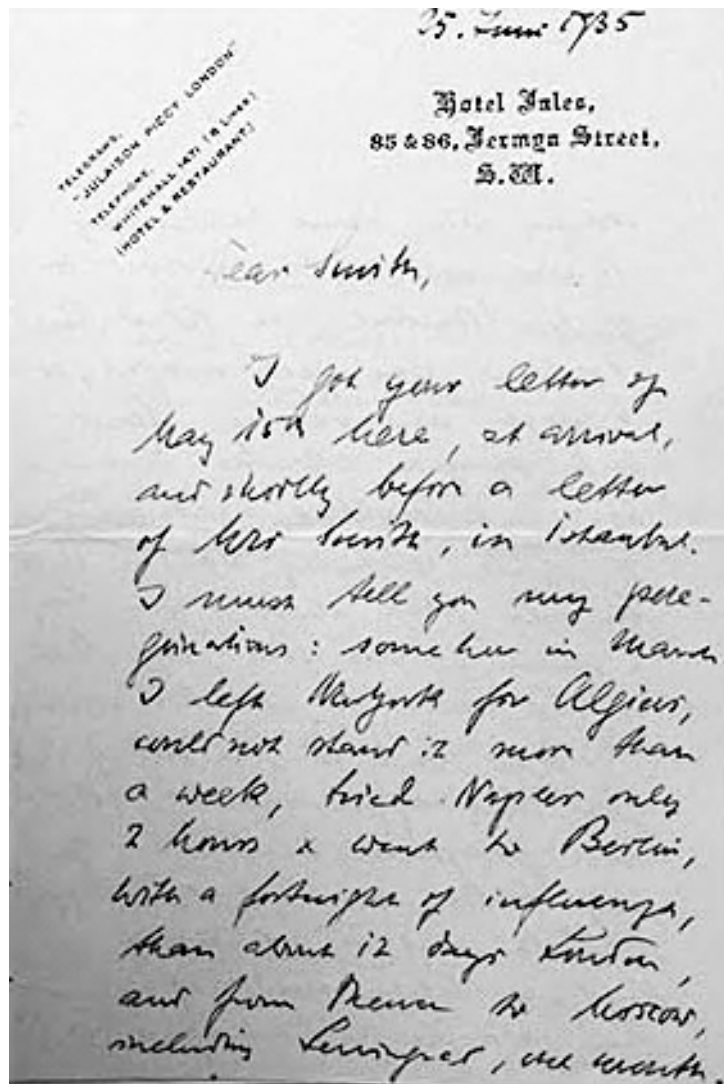 25. Juni 1935
TELEGRAMS,
"JULAISON PICCY LONDON"
TELEPHONE,
WHITEHALL 1471 (8 LINES)
(HOTEL & RESTAURANT)
Hotel Jules,
85 & 86, Jermyn Street,
S.W.
Dear Smith,
I got your letter of
May 15th here, at arrival,
and shortly before a letter
of Mrs Smith, in Istanbul.
I must tell you my pere-
grinations: somehow in March
I left New York for Algiers,
could not stand it more than
a week, tried Naples only
2 hours & went to Berlin,
with a fortnight of influenza,
than about 12 days London,
and from thence to Moscow,
including Leningrad, one month,